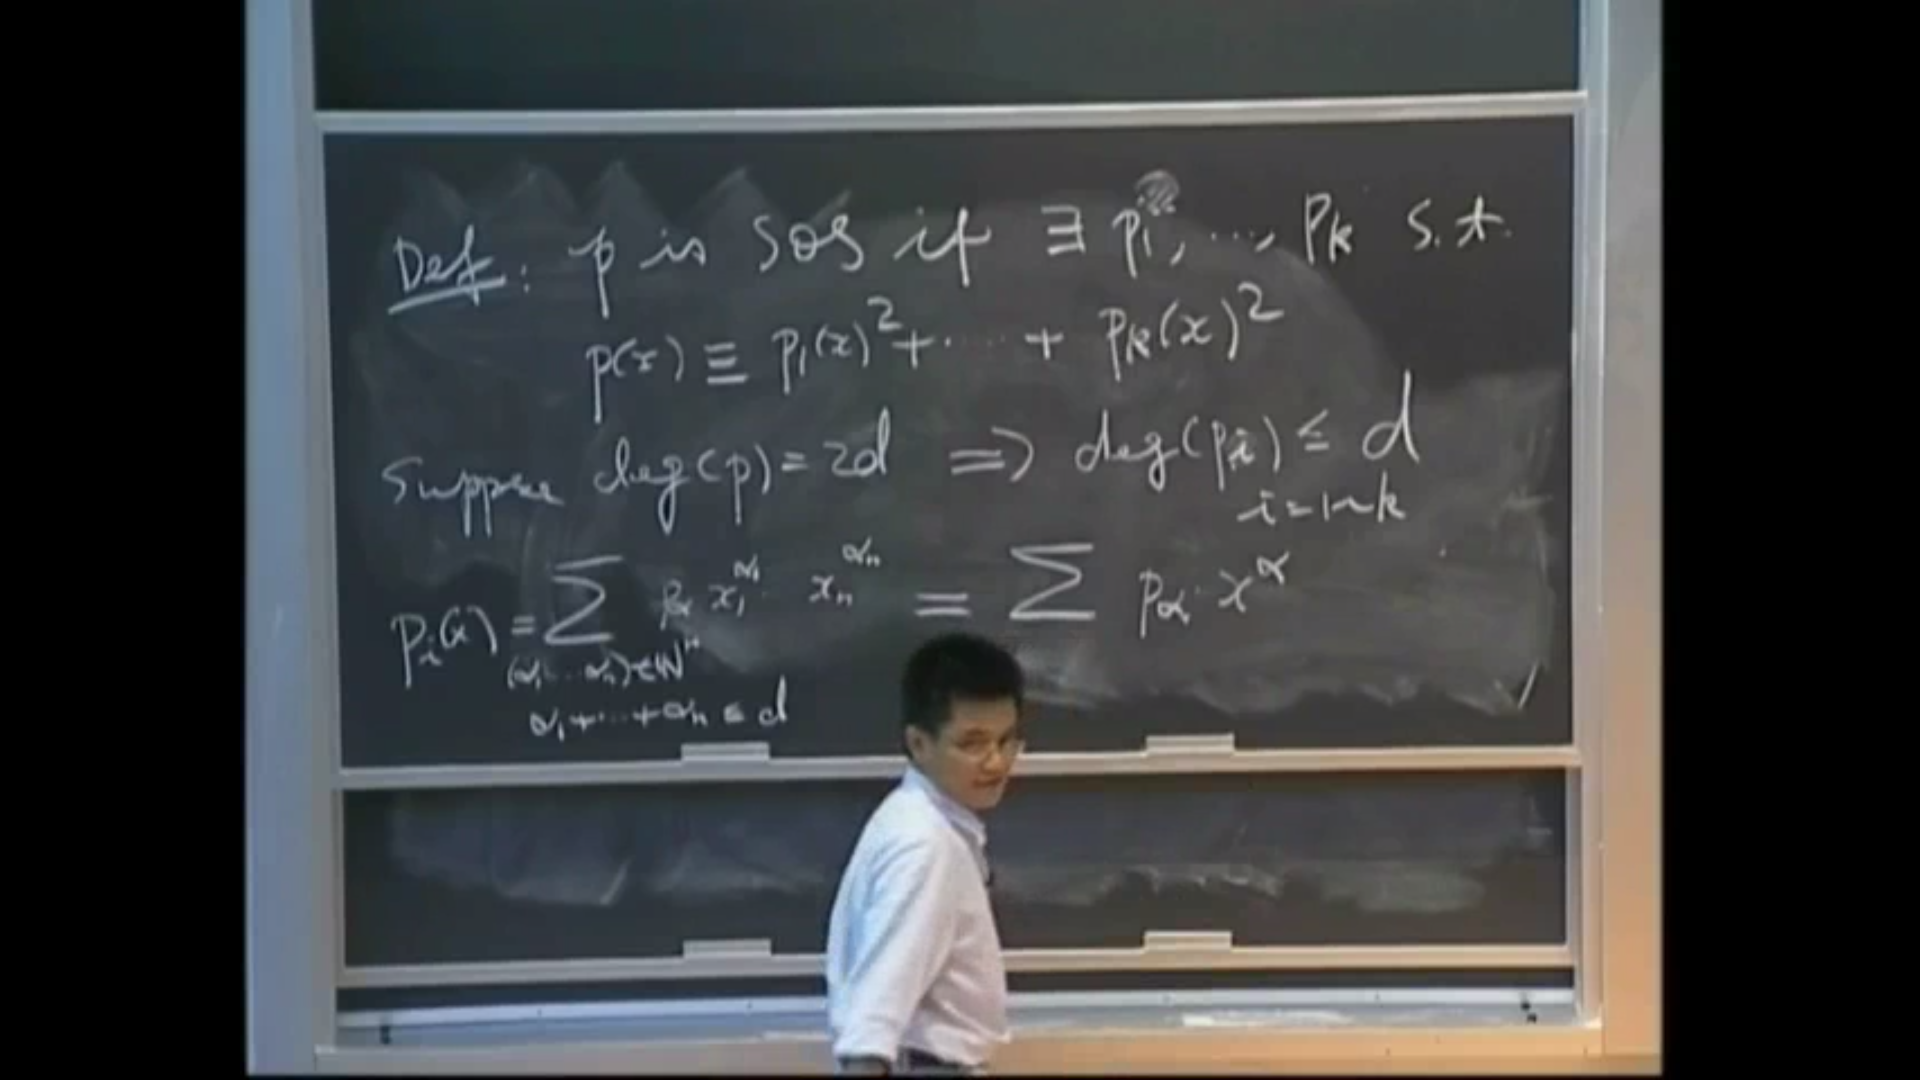 Def: p is SOS if ∃ p₁, ..., pₖ s.t.
p(x) ≡ p₁(x)² + ···· + pₖ(x)²
Suppose deg(p) = 2d ⟹ deg(pᵢ) ≤ d
i = 1~k
pᵢ(x) = ∑ p_α x₁^α₁ ·· xₙ^αₙ = ∑ p_α · x^α
(α₁ ... αₙ) ∈ ℕⁿ
α₁ + ··· + αₙ ≤ d